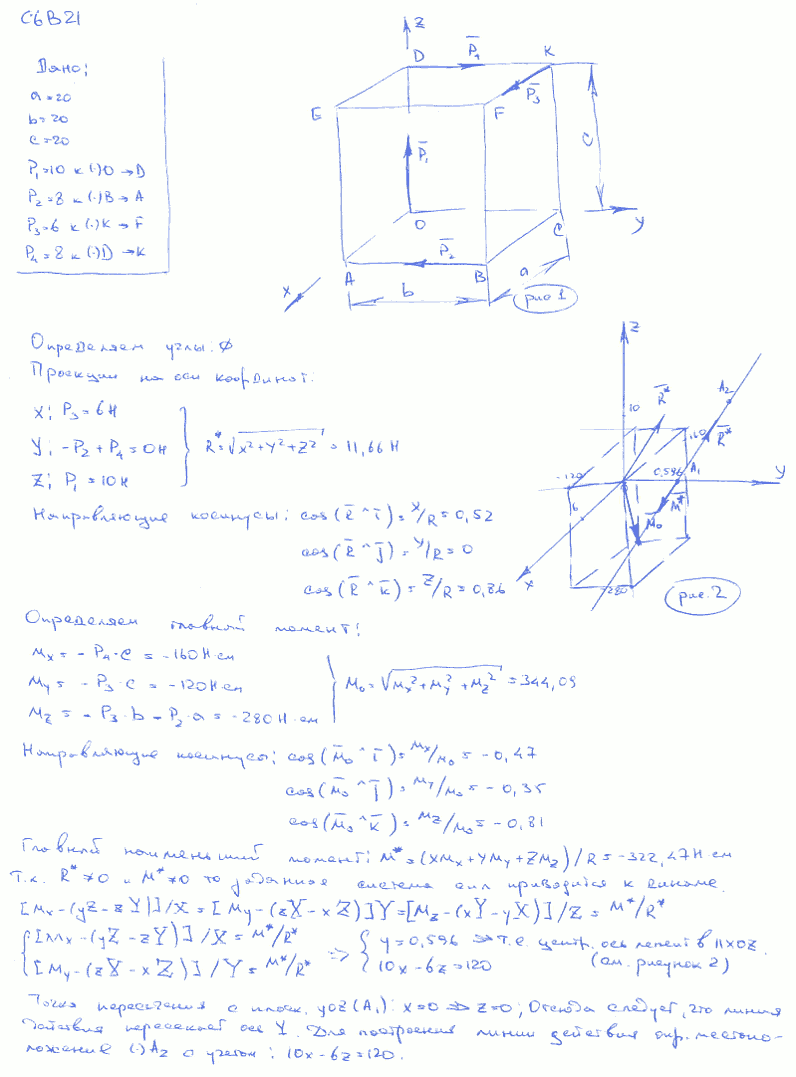 С6В21
Дано:
a = 20
b = 20
c = 20
P₁ = 10 к (·)O → D
P₂ = 8 к (·)B → A
P₃ = 6 к (·)K → F
P₄ = 8 к (·)D → K
z
D
P̄₄
K
E
F
P̄₃
c
P̄₁
O
C
y
A
P̄₂
B
a
x
b
рис 1
Определяем углы: ∅
Проекции на оси координат:
X: P₃ = 6 Н
Y: -P₂ + P₄ = 0 Н
Z: P₁ = 10 Н
R* = √x²+Y²+Z² = 11,66 Н
Направляющие косинусы: cos(R̄ ^ ī) = X/R = 0,52
cos(R̄ ^ j̄) = Y/R = 0
cos(R̄ ^ k̄) = Z/R = 0,86
z
A₂
10
R̄*
-160
R̄*
-120
0,596
A₁
y
6
M̄*
M̄₀
x
-280
рис. 2
Определяем главный момент:
Mx = - P₄·c = -160 Н·см
My = - P₃·c = -120 Н·см
Mz = - P₃·b - P₂·a = -280 Н·см
M₀ = √Mx²+My²+Mz² = 344,09
Направляющие косинусы: cos(M̄₀ ^ ī) = Mx/M₀ = - 0,47
cos(M̄₀ ^ j̄) = My/M₀ = - 0,35
cos(M̄₀ ^ k̄) = Mz/M₀ = - 0,81
Главный наименьший момент: M* = (XMx + YMy + ZMz)/R = -322,47 Н·см
Т.к. R* ≠ 0 и M* ≠ 0 то заданная система сил приводится к динаме.
[Mx-(yZ-zY)]/X = [My-(zX-xZ)]Y = [Mz-(xY-yX)]/Z = M*/R*
[Mx-(yZ-zY)]/X = M*/R*
[My-(zX-xZ)]/Y = M*/R*
⇒ y = 0,596 ⇒ т.е. центр. ось лежит в ΠXOZ.
10x-6z = 120 (см. рисунок 2)
Точка пересечения с плоск. yoz (A₁): x=0 ⇒ z=0; Отсюда следует, что линия
действия пересекает ось Y. Для построения линии действия опр. местопо-
ложение (·)A₂ с учетом: 10x-6z = 120.